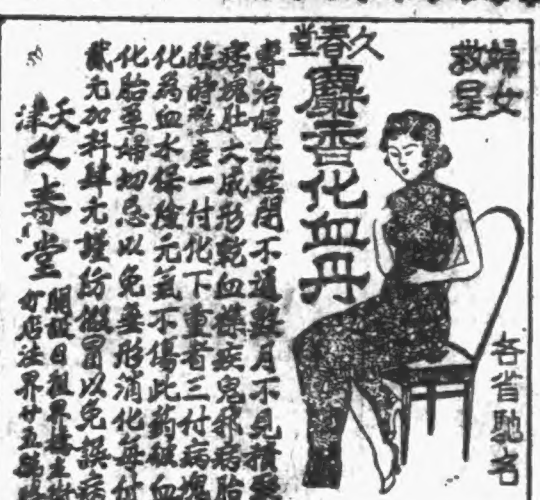 婦女救星
各省馳名
久春堂
麝香化血丹
專治婦女經閉不通數月不見積聚
痞塊肚大成形乾血癆疾鬼邪病胎
臨時難產一付化下重者三付病塊
化為血水保險元氣不傷此药破血
化胎孕婦切忌以免無形消化每付
貳元加料肆元謹防假冒以免誤病
天津久春堂
開設日租界
分店法界廿五號